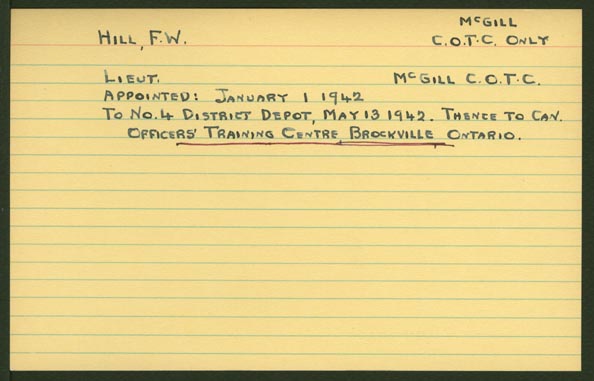 McGILL
HILL, F.W. C.O.T.C. ONLY
LIEUT. McGILL C.O.T.C.
APPOINTED: JANUARY 1 1942
TO NO.4 DISTRICT DEPOT, MAY 13 1942. THENCE TO CAN.
OFFICERS' TRAINING CENTRE BROCKVILLE ONTARIO.